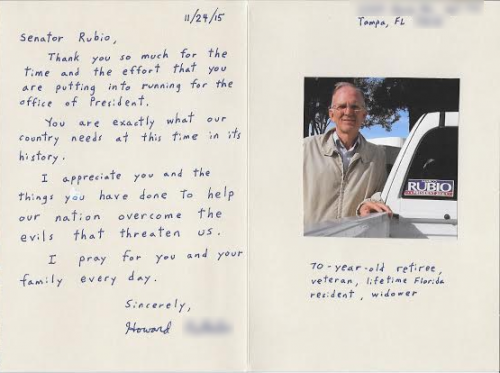 11/24/15
Senator Rubio,
Thank you so much for the
time and the effort that you
are putting into running for the
office of President.
You are exactly what our
country needs at this time in its
history.
I appreciate you and the
things you have done to help
our nation overcome the
evils that threaten us.
I pray for you and your
family every day.
Sincerely,
Howard
Tampa, FL
RUBIO
70-year-old retiree,
veteran, lifetime Florida
resident, widower